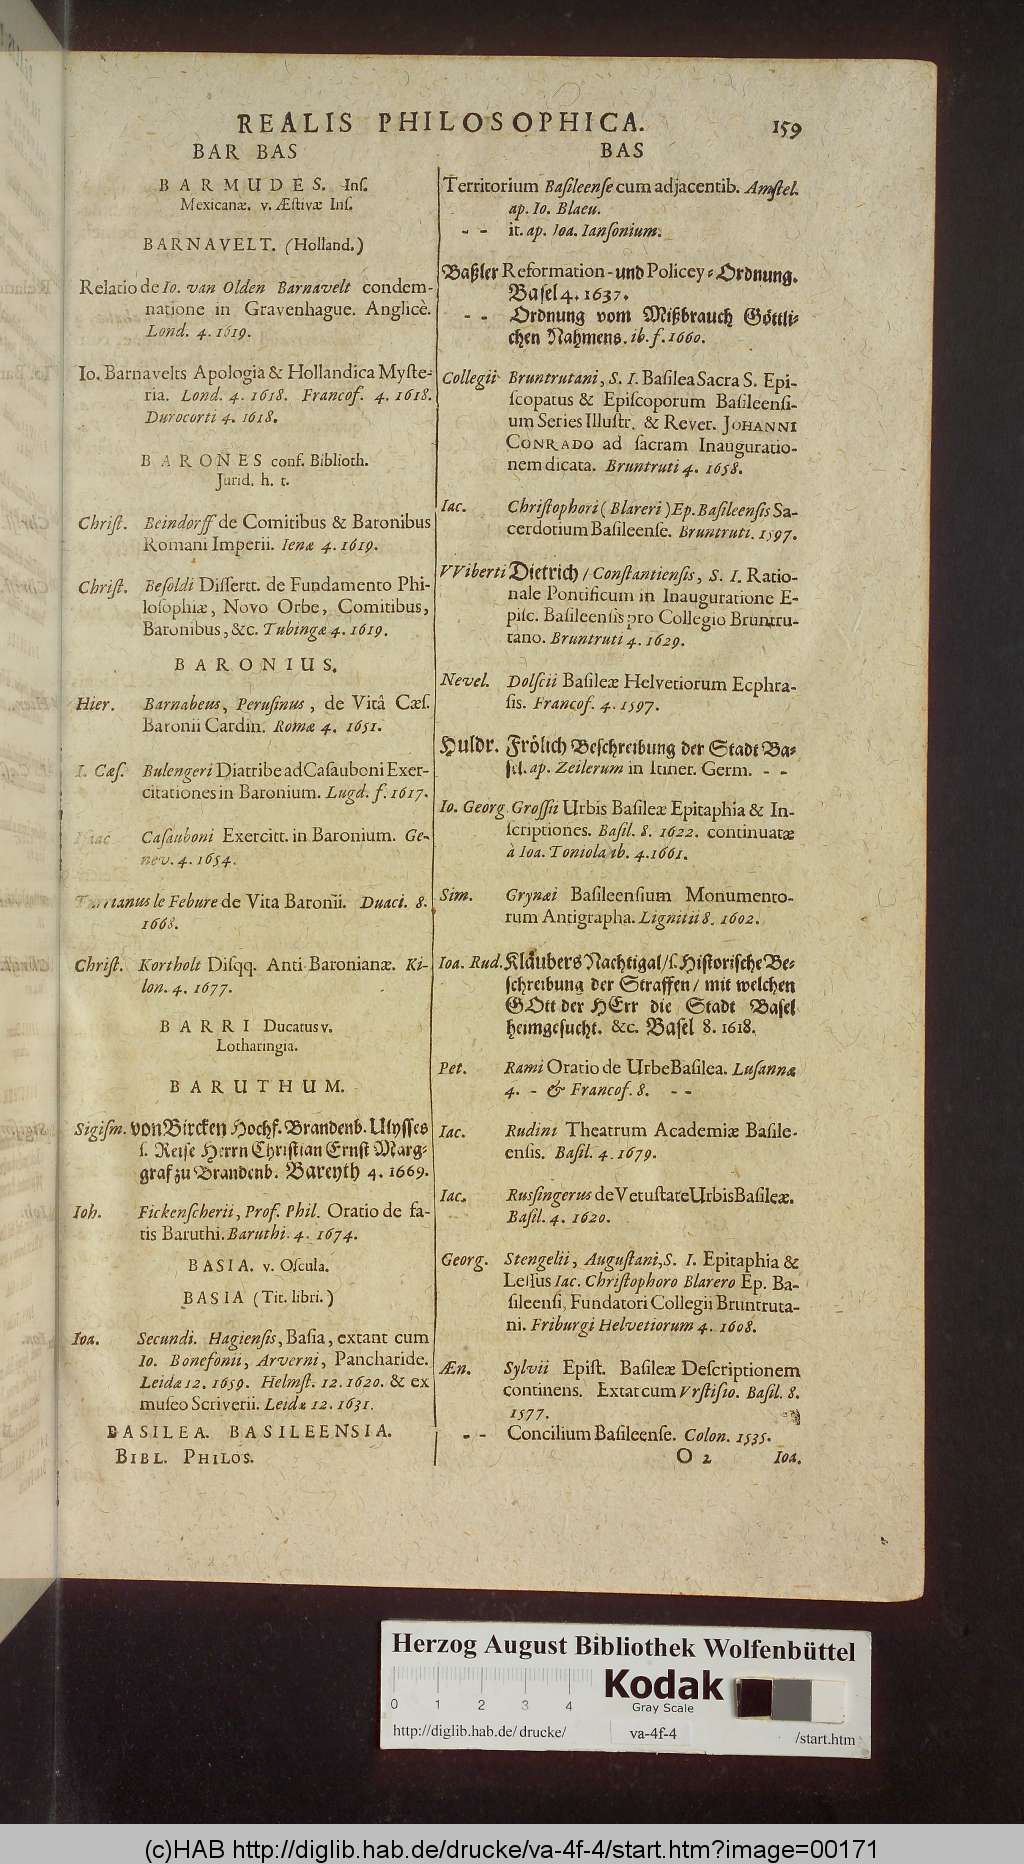 REALIS PHILOSOPHICA. 159
BAR BAS
BARMUDES. Inſ.
Mexicanæ. v. Æſtivæ Inſ.
BARNAVELT. (Holland.)
Relatio de Io. van Olden Barnavelt condem-
natione in Gravenhague. Anglicè.
Lond. 4. 1619.
Io. Barnavelts Apologia & Hollandica Myſte-
ria. Lond. 4. 1618. Francof. 4. 1618.
Durocorti 4. 1618.
BARONES conf. Biblioth.
Jurid. h. t.
Chriſt. Beindorff de Comitibus & Baronibus
Romani Imperii. Ienæ 4. 1619.
Chriſt. Beſoldi Diſſertt. de Fundamento Phi-
loſophiæ, Novo Orbe, Comitibus,
Baronibus, &c. Tubingæ 4. 1619.
BARONIUS.
Hier. Barnabeus, Peruſinus, de Vitâ Cæſ.
Baronii Cardin. Romæ 4. 1651.
I. Cæſ. Bulengeri Diatribe ad Caſauboni Exer-
citationes in Baronium. Lugd. f. 1617.
Caſauboni Exercitt. in Baronium. Ge-
nev. 4. 1654.
le Febure de Vita Baronii. Duaci. 8.
1668.
Chriſt. Kortholt Diſqq. Anti-Baronianæ. Ki-
lon. 4. 1677.
BARRI Ducatus v.
Lotharingia.
BARUTHUM.
Sigiſm. von Bircken Hochf. Brandenb. Ulyſſes
ſ. Reiſe Herrn Chriſtian Ernſt Marg-
graf zu Brandenb. Bareyth 4. 1669.
Ioh. Fickenſcherii, Prof. Phil. Oratio de fa-
tis Baruthi. Baruthi. 4. 1674.
BASIA. v. Oſcula.
BASIA (Tit. libri.)
Ioa. Secundi. Hagienſis, Baſia, extant cum
Io. Bonefonii, Arverni, Pancharide.
Leidæ 12. 1659. Helmſt. 12. 1620. & ex
muſeo Scriverii. Leidæ 12. 1631.
BASILEA. BASILEENSIA.
BIBL. PHILOS.
BAS
Territorium Baſileenſe cum adjacentib. Amſtel.
ap. Io. Blaeu.
- - it. ap. Ioa. Ianſonium.
Baßler Reformation- und Policey-Ordnung.
Baſel 4. 1637.
- - Ordnung vom Mißbrauch Göttli-
chen Nahmens. ib. f. 1660.
Collegii Bruntrutani, S. I. Baſilea Sacra S. Epi-
ſcopatus & Epiſcoporum Baſileenſi-
um Series Illuſtr. & Rever. JOHANNI
CONRADO ad ſacram Inauguratio-
nem dicata. Bruntruti 4. 1658.
Iac. Chriſtophori (Blareri) Ep. Baſileenſis Sa-
cerdotium Baſileenſe. Bruntruti. 1597.
VViberti Dietrich / Conſtantienſis, S. I. Ratio-
nale Pontificum in Inauguratione E-
piſc. Baſileenſis pro Collegio Bruntru-
tano. Bruntruti 4. 1629.
Nevel. Dolſcii Baſileæ Helvetiorum Ecphra-
ſis. Francof. 4. 1597.
Huldr. Frölich Beſchreibung der Stadt Ba-
ſel. ap. Zeilerum in Itiner. Germ. - -
Io. Georg. Groſſii Urbis Baſileæ Epitaphia & In-
ſcriptiones. Baſil. 8. 1622. continuatæ
à Ioa. Toniola ib. 4. 1661.
Sim. Grynæi Baſileenſium Monumento-
rum Antigrapha. Lignitii 8. 1602.
Ioa. Rud. Kläubers Nachtigal / ſ. Hiſtoriſche Be-
ſchreibung der Straffen / mit welchen
GOtt der HErr die Stadt Baſel
heimgeſucht. &c. Baſel 8. 1618.
Pet. Rami Oratio de Urbe Baſilea. Luſannæ
4. - & Francof. 8. - -
Iac. Rudini Theatrum Academiæ Baſile-
enſis. Baſil. 4. 1679.
Iac. Ruſſingerus de Vetuſtate Urbis Baſileæ.
Baſil. 4. 1620.
Georg. Stengelii, Auguſtani, S. I. Epitaphia &
Leſſus Iac. Chriſtophoro Blarero Ep. Ba-
ſileenſi, Fundatori Collegii Bruntruta-
ni. Friburgi Helvetiorum 4. 1608.
Æn. Sylvii Epiſt. Baſileæ Deſcriptionem
continens. Extat cum Vrſtiſio. Baſil. 8.
1577.
- - Concilium Baſileenſe. Colon. 1535.
O 2 Ioa.
Herzog August Bibliothek Wolfenbüttel
0 1 2 3 4
Kodak
Gray Scale
http://diglib.hab.de/drucke/ va-4f-4 /start.htm
(c)HAB http://diglib.hab.de/drucke/va-4f-4/start.htm?image=00171